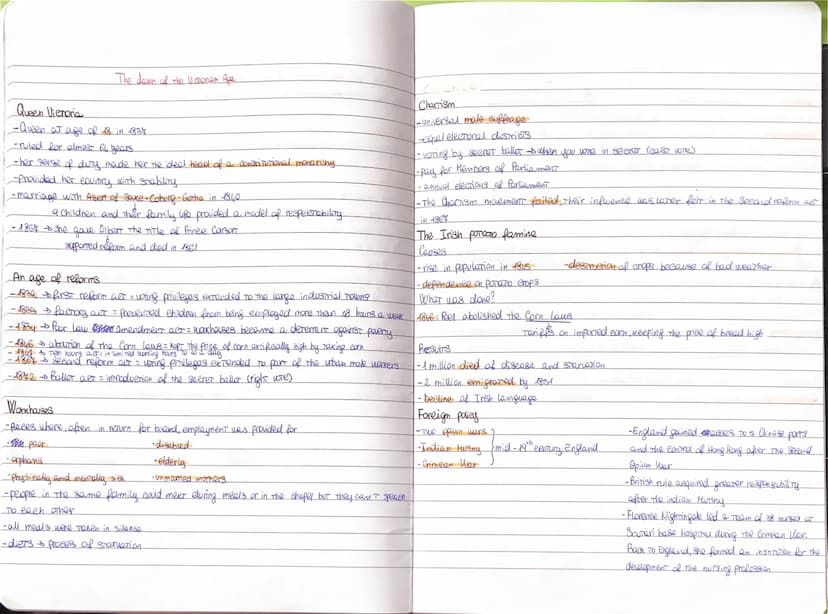 The dawn of the Victorian Age
Queen Victoria
-Queen at age of 18 in 1837
-ruled for almost 64 years
-her sense of duty made her the ideal head of a constitutional monarchy
-Provided her country with stability
-marriage with Albert of Saxe-Coburg-Gotha in 1840
9 children and their family life provided a model of respectability
-1857 → she gave Albert the title of Prince Consort
supported reform and died in 1861
An age of reforms
-1832 → first reform act = voting privileges extended to the large industrial towns
-1833 → factory act = prevented children from being employed more than 48 hours a week
-1834 → Poor law amendment act = workhouses became a deterrent against poverty
-1846 → abolition of the Corn laws = kept the price of corn artificially high by taxing corn
-1847 → Ten hours act = limited working hours to 10 a day
-1867 → second reform act = voting privileges extended to part of the urban male workers
-1872 → Ballot act = introduction of the secret ballot (right vote)
Workhouses
-Places where, often in return for board, employment was provided for
·The poor ·disabled
·orphans ·elderly
·physically and mentally sick ·unmarried mothers
-people in the same family could meet during meals or in the chapel but they can't speak
to each other
-all meals were taken in silence
-diets → process of starvation
Chartism
-universal male suffrage
-equal electoral districts
-voting by secret ballot → when you vote in secret (cast vote)
-pay for Members of Parliament
-annual elections of Parliament
-The Chartism movement failed, their influence was later felt in the Second reform act
in 1867
The Irish potato famine
Causes
-rise in population in 1845 -destruction of crops because of bad weather
-dependence on potato crops
What was done?
1846: Peel abolished the Corn laws
tariffs on imported corn, keeping the price of bread high
Results
-1 million died of disease and starvation
-2 million emigrated by 1851
-Decline of Irish language
Foreign policy
-Two opium wars
-Indian Mutiny mid-19th century England
-Crimean War
-England gained access to 5 Chinese ports
and the control of Hong Kong after the Second
Opium War
-British rule acquired greater responsibility
after the Indian Mutiny
-Florence Nightingale led a team of 38 nurses at
Scutari base hospital during the Crimean War.
Back to England, she formed an institution for the
development of the nursing profession